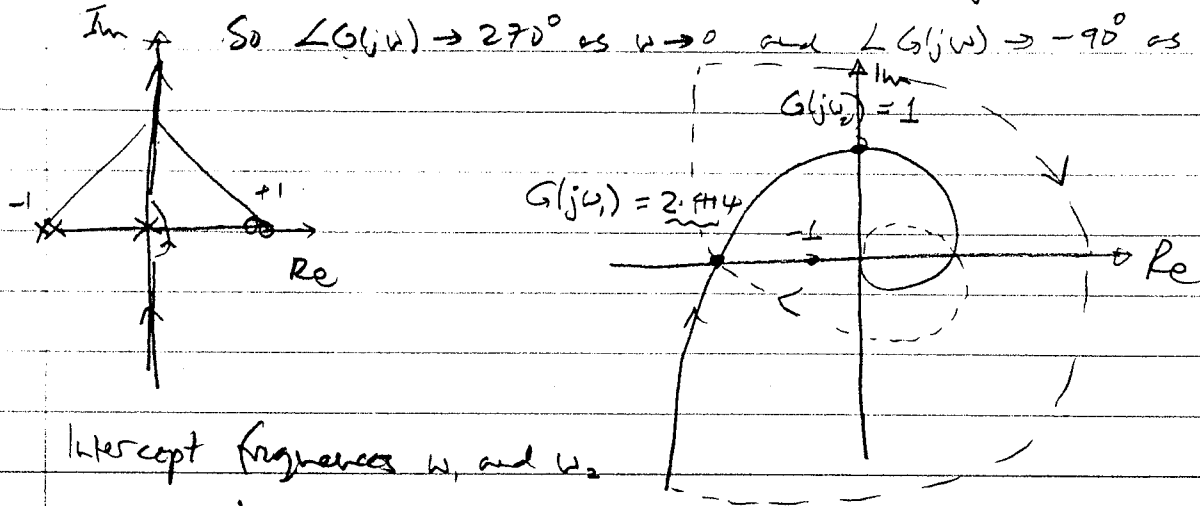 So ∠G(jω) → 270° as ω→0 and ∠G(jω) → -90° as
Im
Im
G(jω₂) = 1
-1
+1
G(jω₁) = 2.414
-1
Re
Re
Intercept frequences ω₁ and ω₂